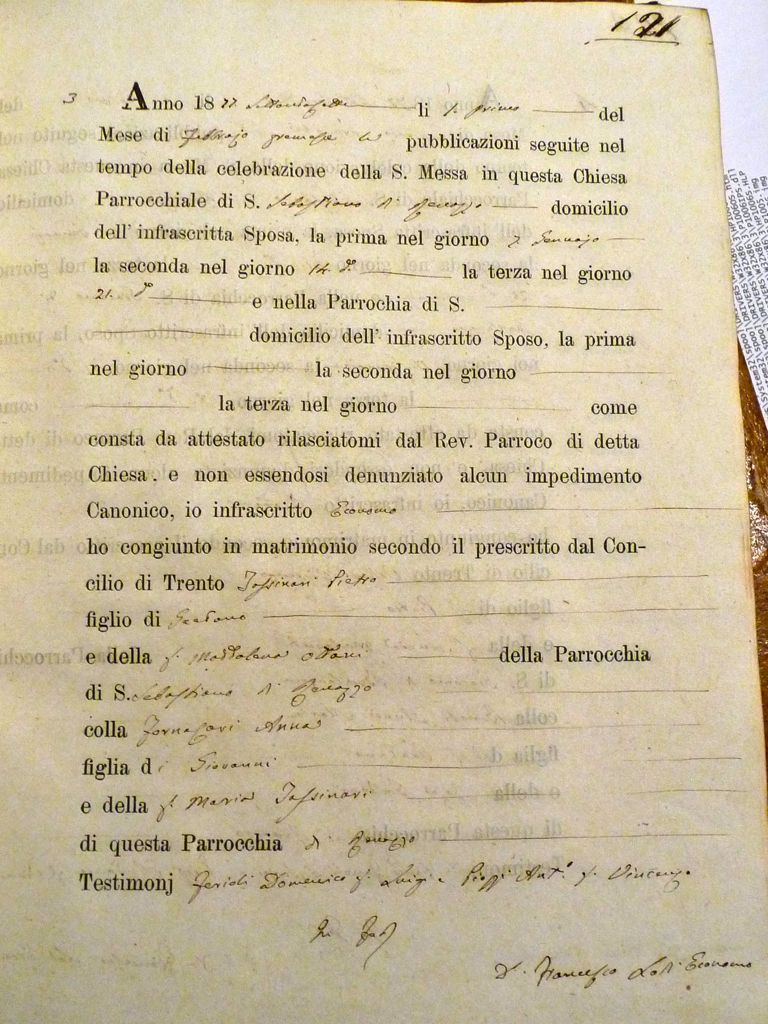 121
3 Anno 1877 Settantasette li 1. primo del
Mese di Febbrajo premesse le pubblicazioni seguite nel
tempo della celebrazione della S. Messa in questa Chiesa
Parrocchiale di S. Sebastiano di Renazzo domicilio
dell'infrascritta Sposa, la prima nel giorno 7 Gennajo
la seconda nel giorno 14 do la terza nel giorno
21. do e nella Parrochia di S.
domicilio dell'infrascritto Sposo, la prima
nel giorno la seconda nel giorno
la terza nel giorno come
consta da attestato rilasciatomi dal Rev. Parroco di detta
Chiesa. e non essendosi denunziato alcun impedimento
Canonico, io infrascritto Economo
ho congiunto in matrimonio secondo il prescritto dal Con-
cilio di Trento Tassinari Pietro
figlio di Gaetano
e della fu Maddalena Ottani della Parrocchia
di S. Sebastiano di Renazzo
colla Fornasari Anna
figlia di Giovanni
e della fu Maria Tassinari
di questa Parrocchia di Renazzo
Testimonj Domenico fu Luigi e Anto. fu Vincenzo
In Fede
D. Francesco Lodi Economo